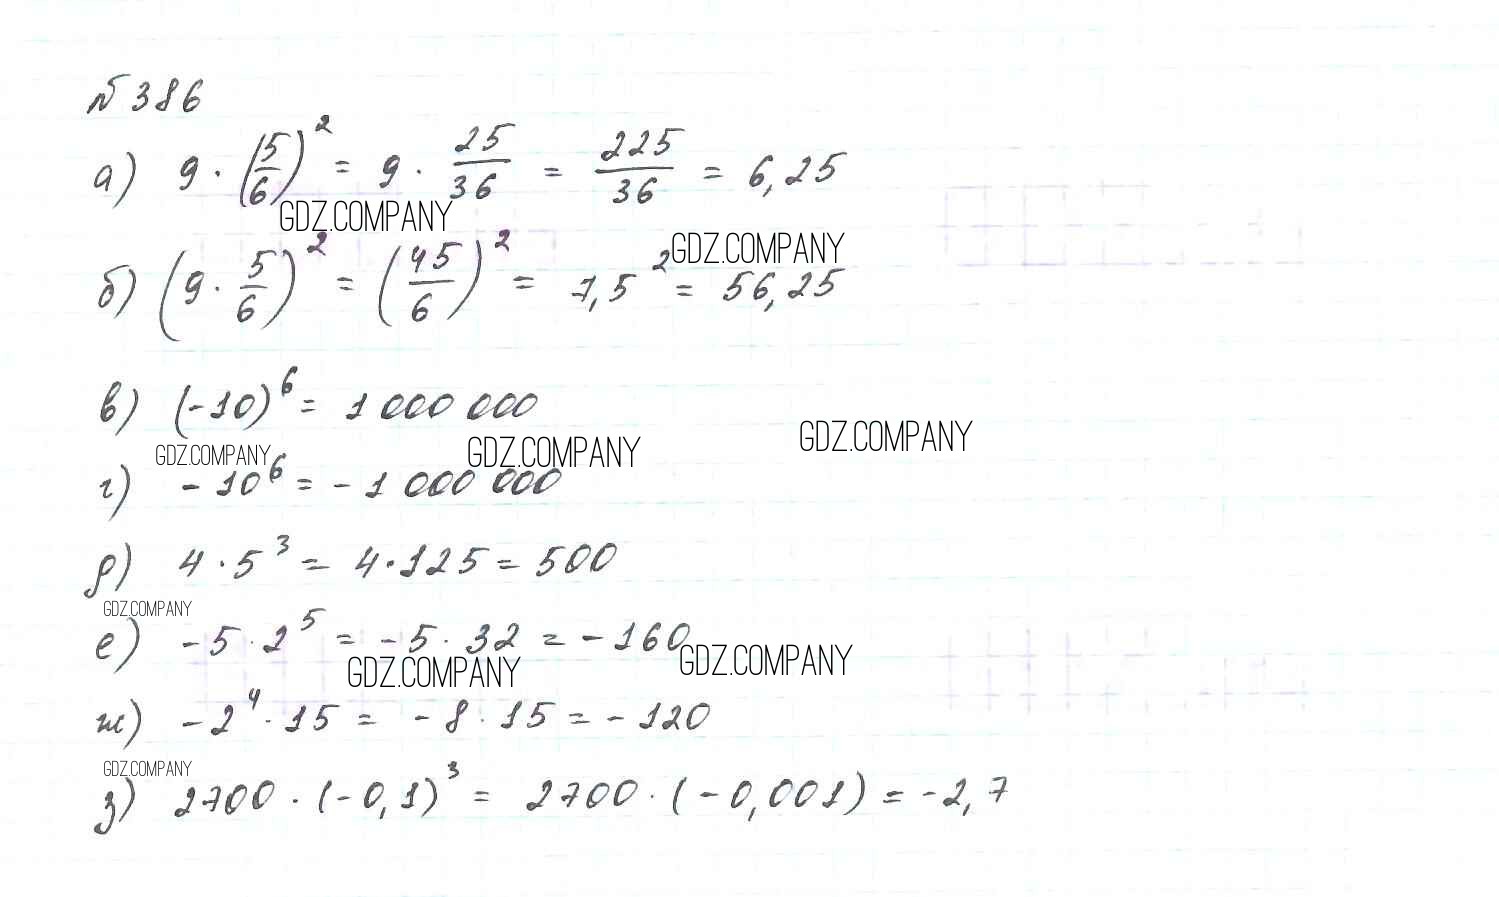 № 386
а) 9 · (5/6)² = 9 · 25/36 = 225/36 = 6,25
GDZ.COMPANY
GDZ.COMPANY
б) (9 · 5/6)² = (45/6)² = 7,5² = 56,25
в) (-10)⁶ = 1 000 000
GDZ.COMPANY GDZ.COMPANY GDZ.COMPANY
г) - 10⁶ = - 1 000 000
д) 4 · 5³ = 4 · 125 = 500
GDZ.COMPANY
е) - 5 · 2⁵ = - 5 · 32 = - 160
GDZ.COMPANY GDZ.COMPANY
ж) - 2⁴ · 15 = - 8 · 15 = - 120
GDZ.COMPANY
з) 2700 · (- 0,1)³ = 2700 · (- 0,001) = - 2,7